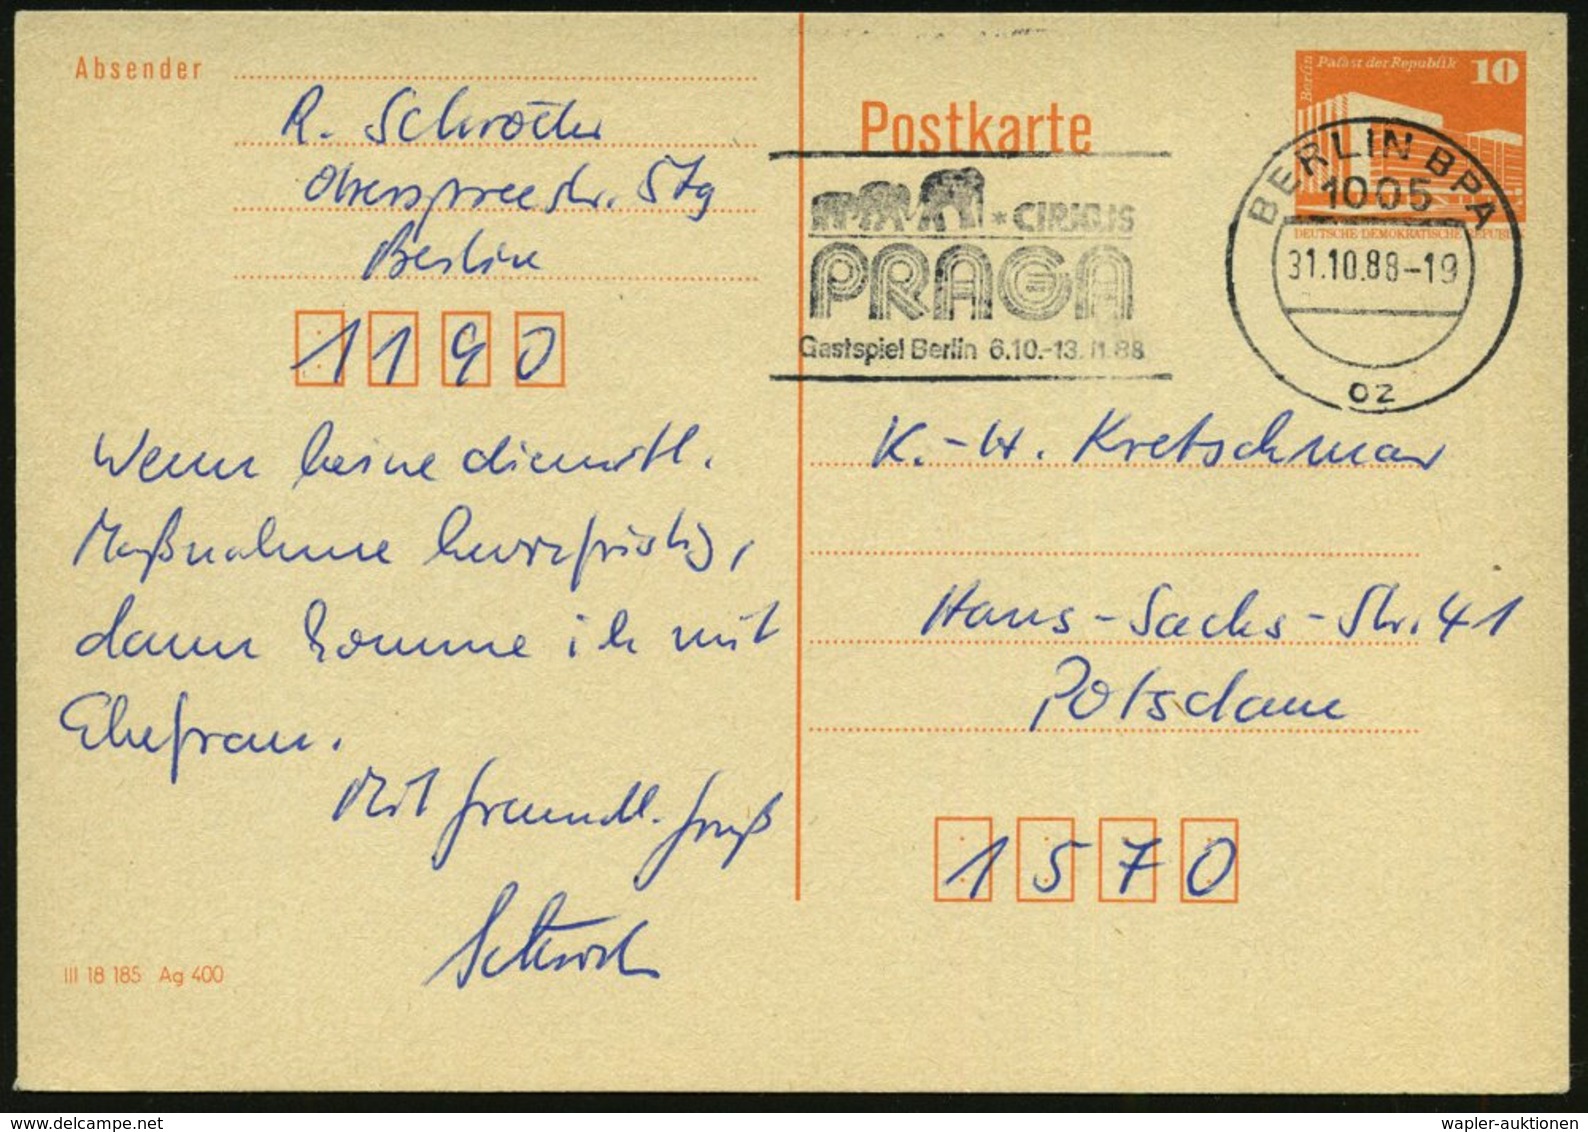 Absender
R. Schröder
Oberspreestr. 57g
Berlin
1190
Wenn keine dienstl.
Maßnahme kurzfristig,
dann komme ich mit
Ehefrau.
Mit freundl. Gruß
III 18 185 Ag 400
Postkarte
* CIRKUS
PRAGA
Gastspiel Berlin 6.10.-13.11.88
Berlin
Palast der Republik 10
DEUTSCHE DEMOKRATISCHE REPUBLI
BERLIN BPA
1005
31.10.88-19
oz
K.-H. Kretschmar
Hans-Sachs-Str. 41
Potsdam
1570
wapler-auktionen